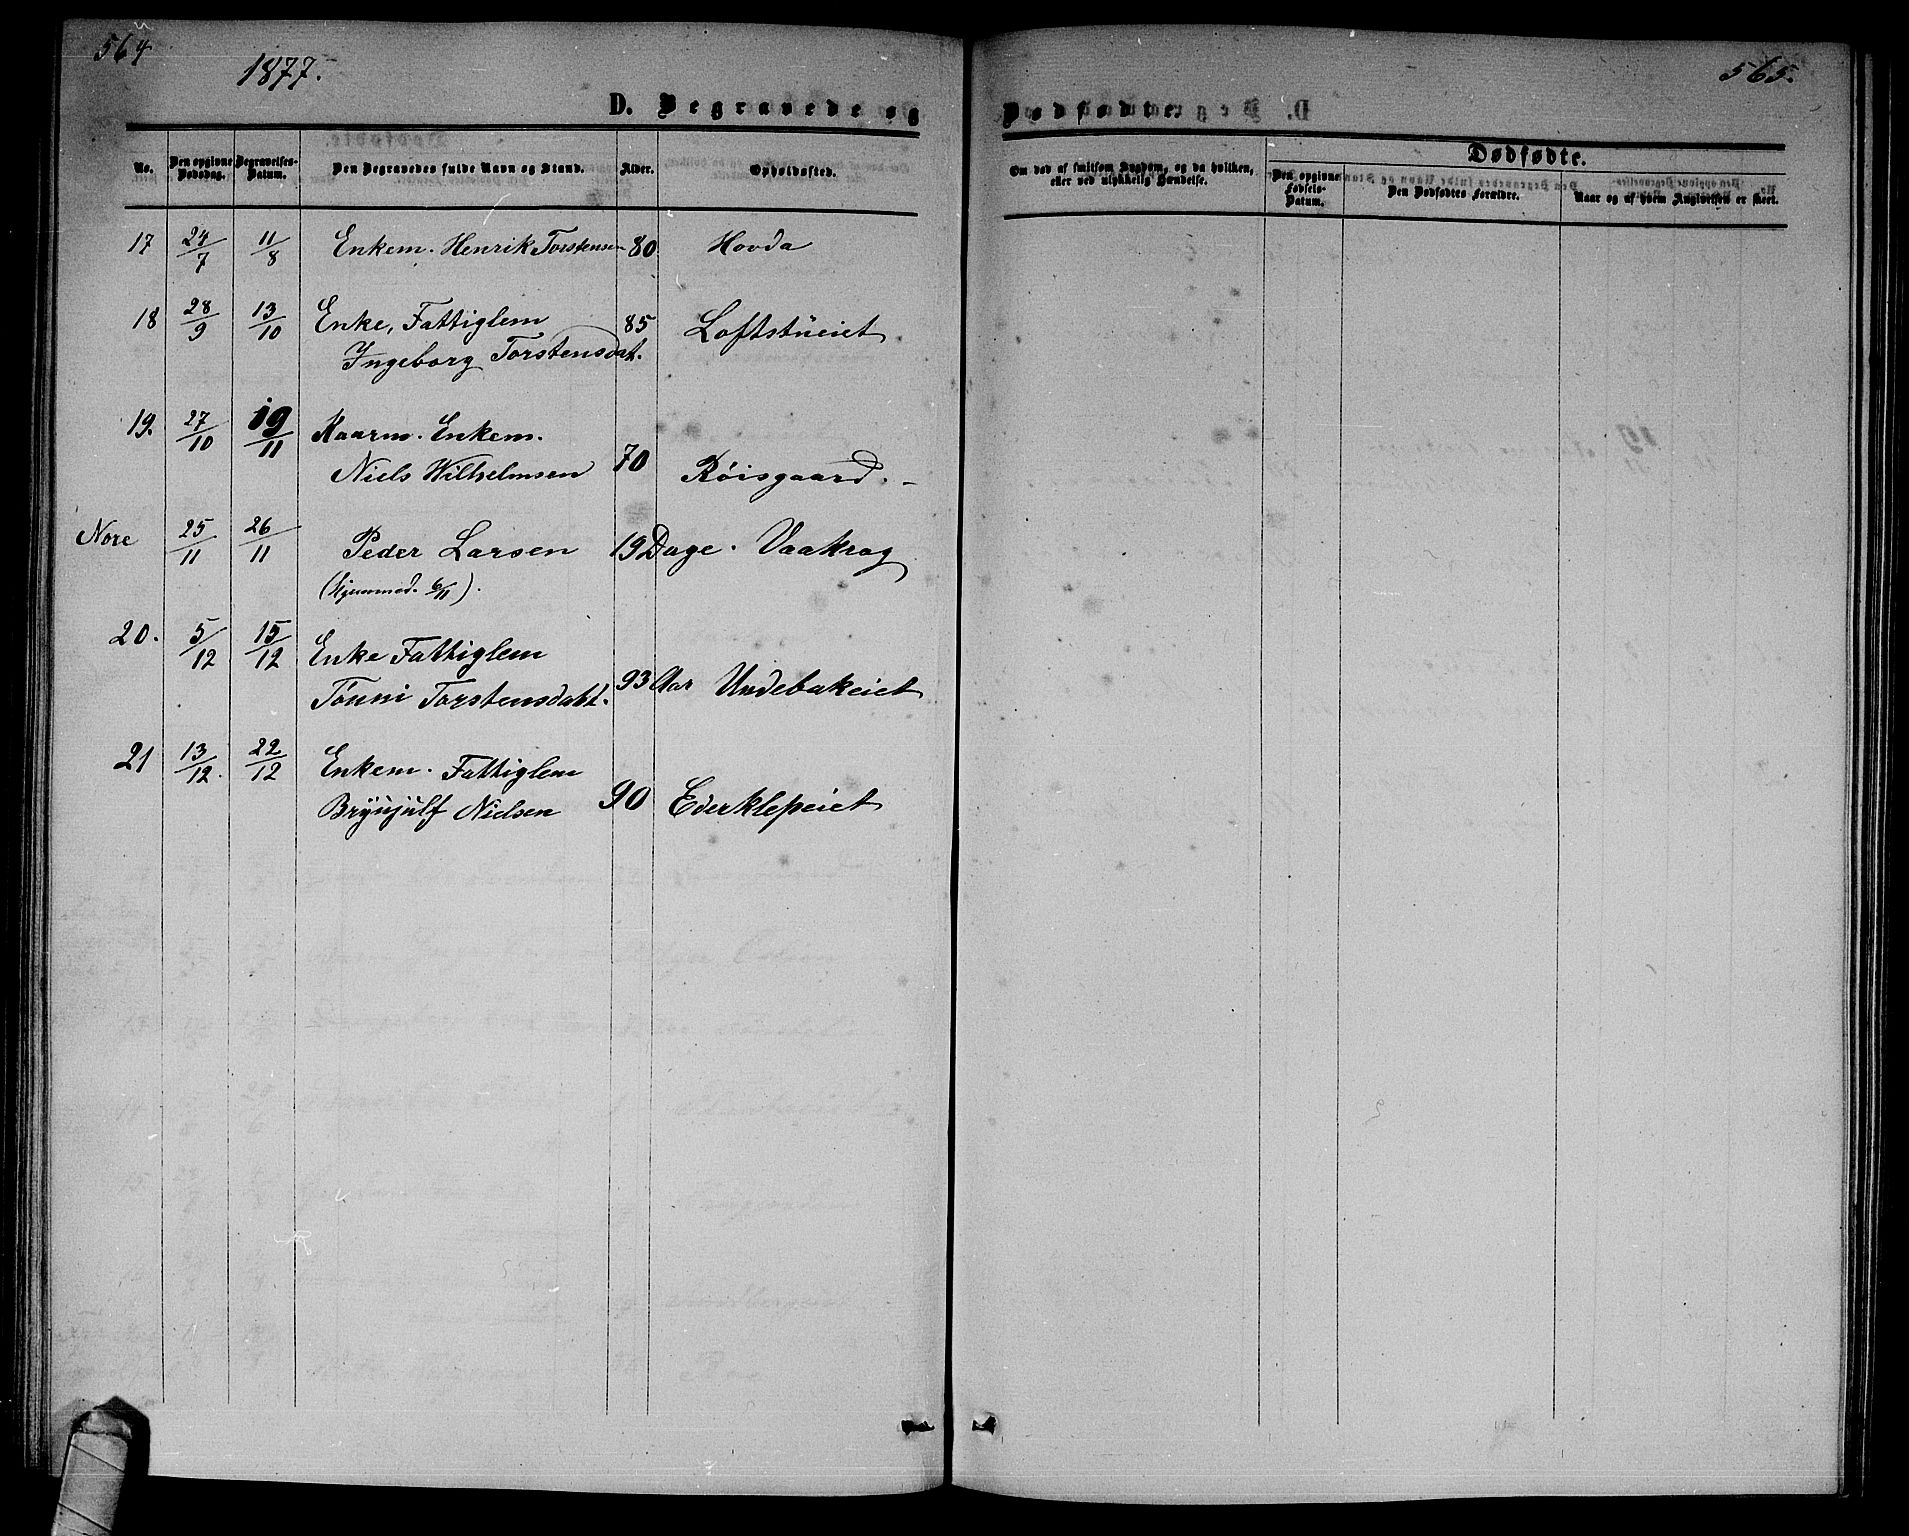 564
1877.
565.
D. Begravede og Dødfødte.
No. Den opgivne Dødsdag. Begravelses-Datum. Den Begravedes fulde Navn og Stand. Alder. Opholdssted.
Om død af smitsom Sygdom, og da hvilken, eller ved ulykkelig Hændelse.
Dødfødte.
Den opgivne Fødsels-Datum. Den Dødfødtes Forældre. Naar og af hvem Angivelsen er skeet.
17 24/7 11/8 Enkem. Henrik Torstensen 80 Hovda
18 28/9 13/10 Enke, Fattiglem 85 Loftstüeiet.
Ingeborg Torstensdat.
19. 27/10 19/11 Kaarm. Enkem.
Niels Wilhelmsen 70 Röisgaard. -
Nore 25/11 26/11 Peder Larsen 19 Dage. Vaakrag
(Hjemmed. 6/11).
20. 5/12 15/12 Enke Fattiglem
Tönni Torstensdatt. 93 Aar Undebakeiet
21 13/12. 22/12 Enkem. Fattiglem
Brynjulf Nielsen 90 Ederklepeiet